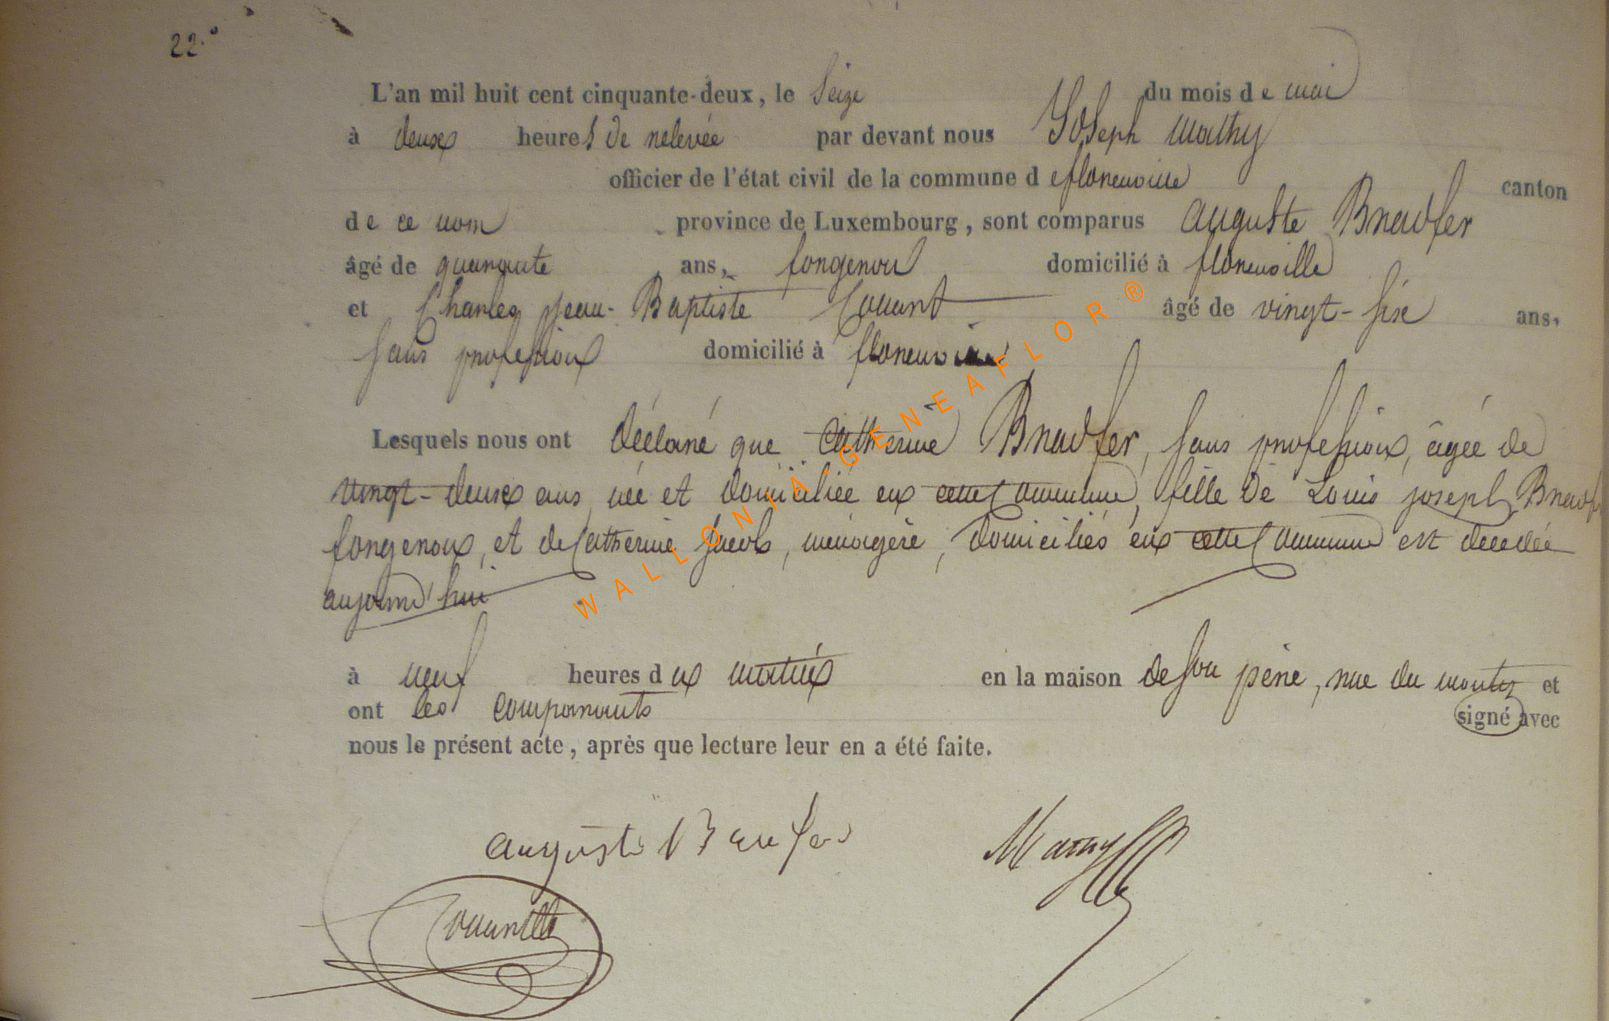 22.°
L'an mil huit cent cinquante-deux, le Seize du mois de mai
à deux heures de relevée par devant nous Joseph Mathy
officier de l'état civil de la commune de florenville canton
de ce nom province de Luxembourg, sont comparus auguste Bradfer
âgé de quarante ans, forgeron domicilié à florenville
et Charles Jean-Baptiste âgé de vingt-six ans,
sans profession domicilié à florenville
Lesquels nous ont déclaré que Catherine Bradfer, sans profession, âgée de
vingt-deux ans, née et domiciliée en cette Commune, fille de Louis joseph Bradfer
forgeron, et de Catherine Jacob, ménagère, domiciliés en cette Commune est décédée
aujourd'hui
à neuf heures du matin en la maison de son père, rue du et
ont les comparants signé avec
nous le présent acte, après que lecture leur en a été faite.
auguste Mathy
WALLONIA GENEAFLOR ®